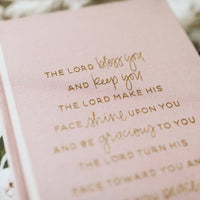 THE LORD bless you
AND keep you
THE LORD MAKE HIS
FACE shine UPON YOU
AND BE gracious TO YOU
THE LORD TURN HIS
FACE TOWARD YOU AND
peace